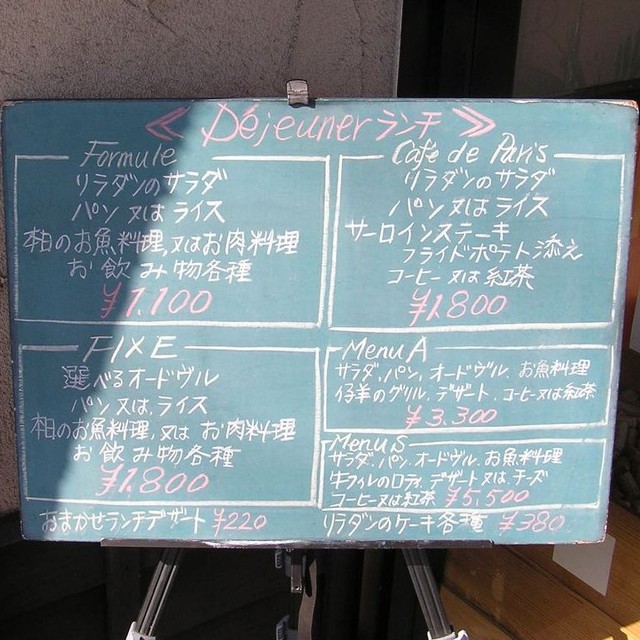 ≪ Déjeuner ランチ ≫
Formule
リラダンのサラダ
パン 又は ライス
本日のお魚料理,又はお肉料理
お飲み物各種
¥1.100
Café de Paris
リラダンのサラダ
パン 又は ライス
サーロインステーキ
フライドポテト添え
コーヒー又は紅茶
¥1.800
FIXE
選べるオードヴル
パン 又は,ライス
本日のお魚料理,又は お肉料理
お飲み物各種
¥1.800
Menu A
サラダ,パン,オードヴル,お魚料理
仔羊のグリル,デザート,コーヒー又は紅茶
¥3.300
Menu S
サラダ.パン.オードヴル.お魚料理
牛フィレのロティ,デザート又は,チーズ
コーヒー又は紅茶 ¥5,500
おまかせランチデザート ¥220
リラダンのケーキ各種 ¥380